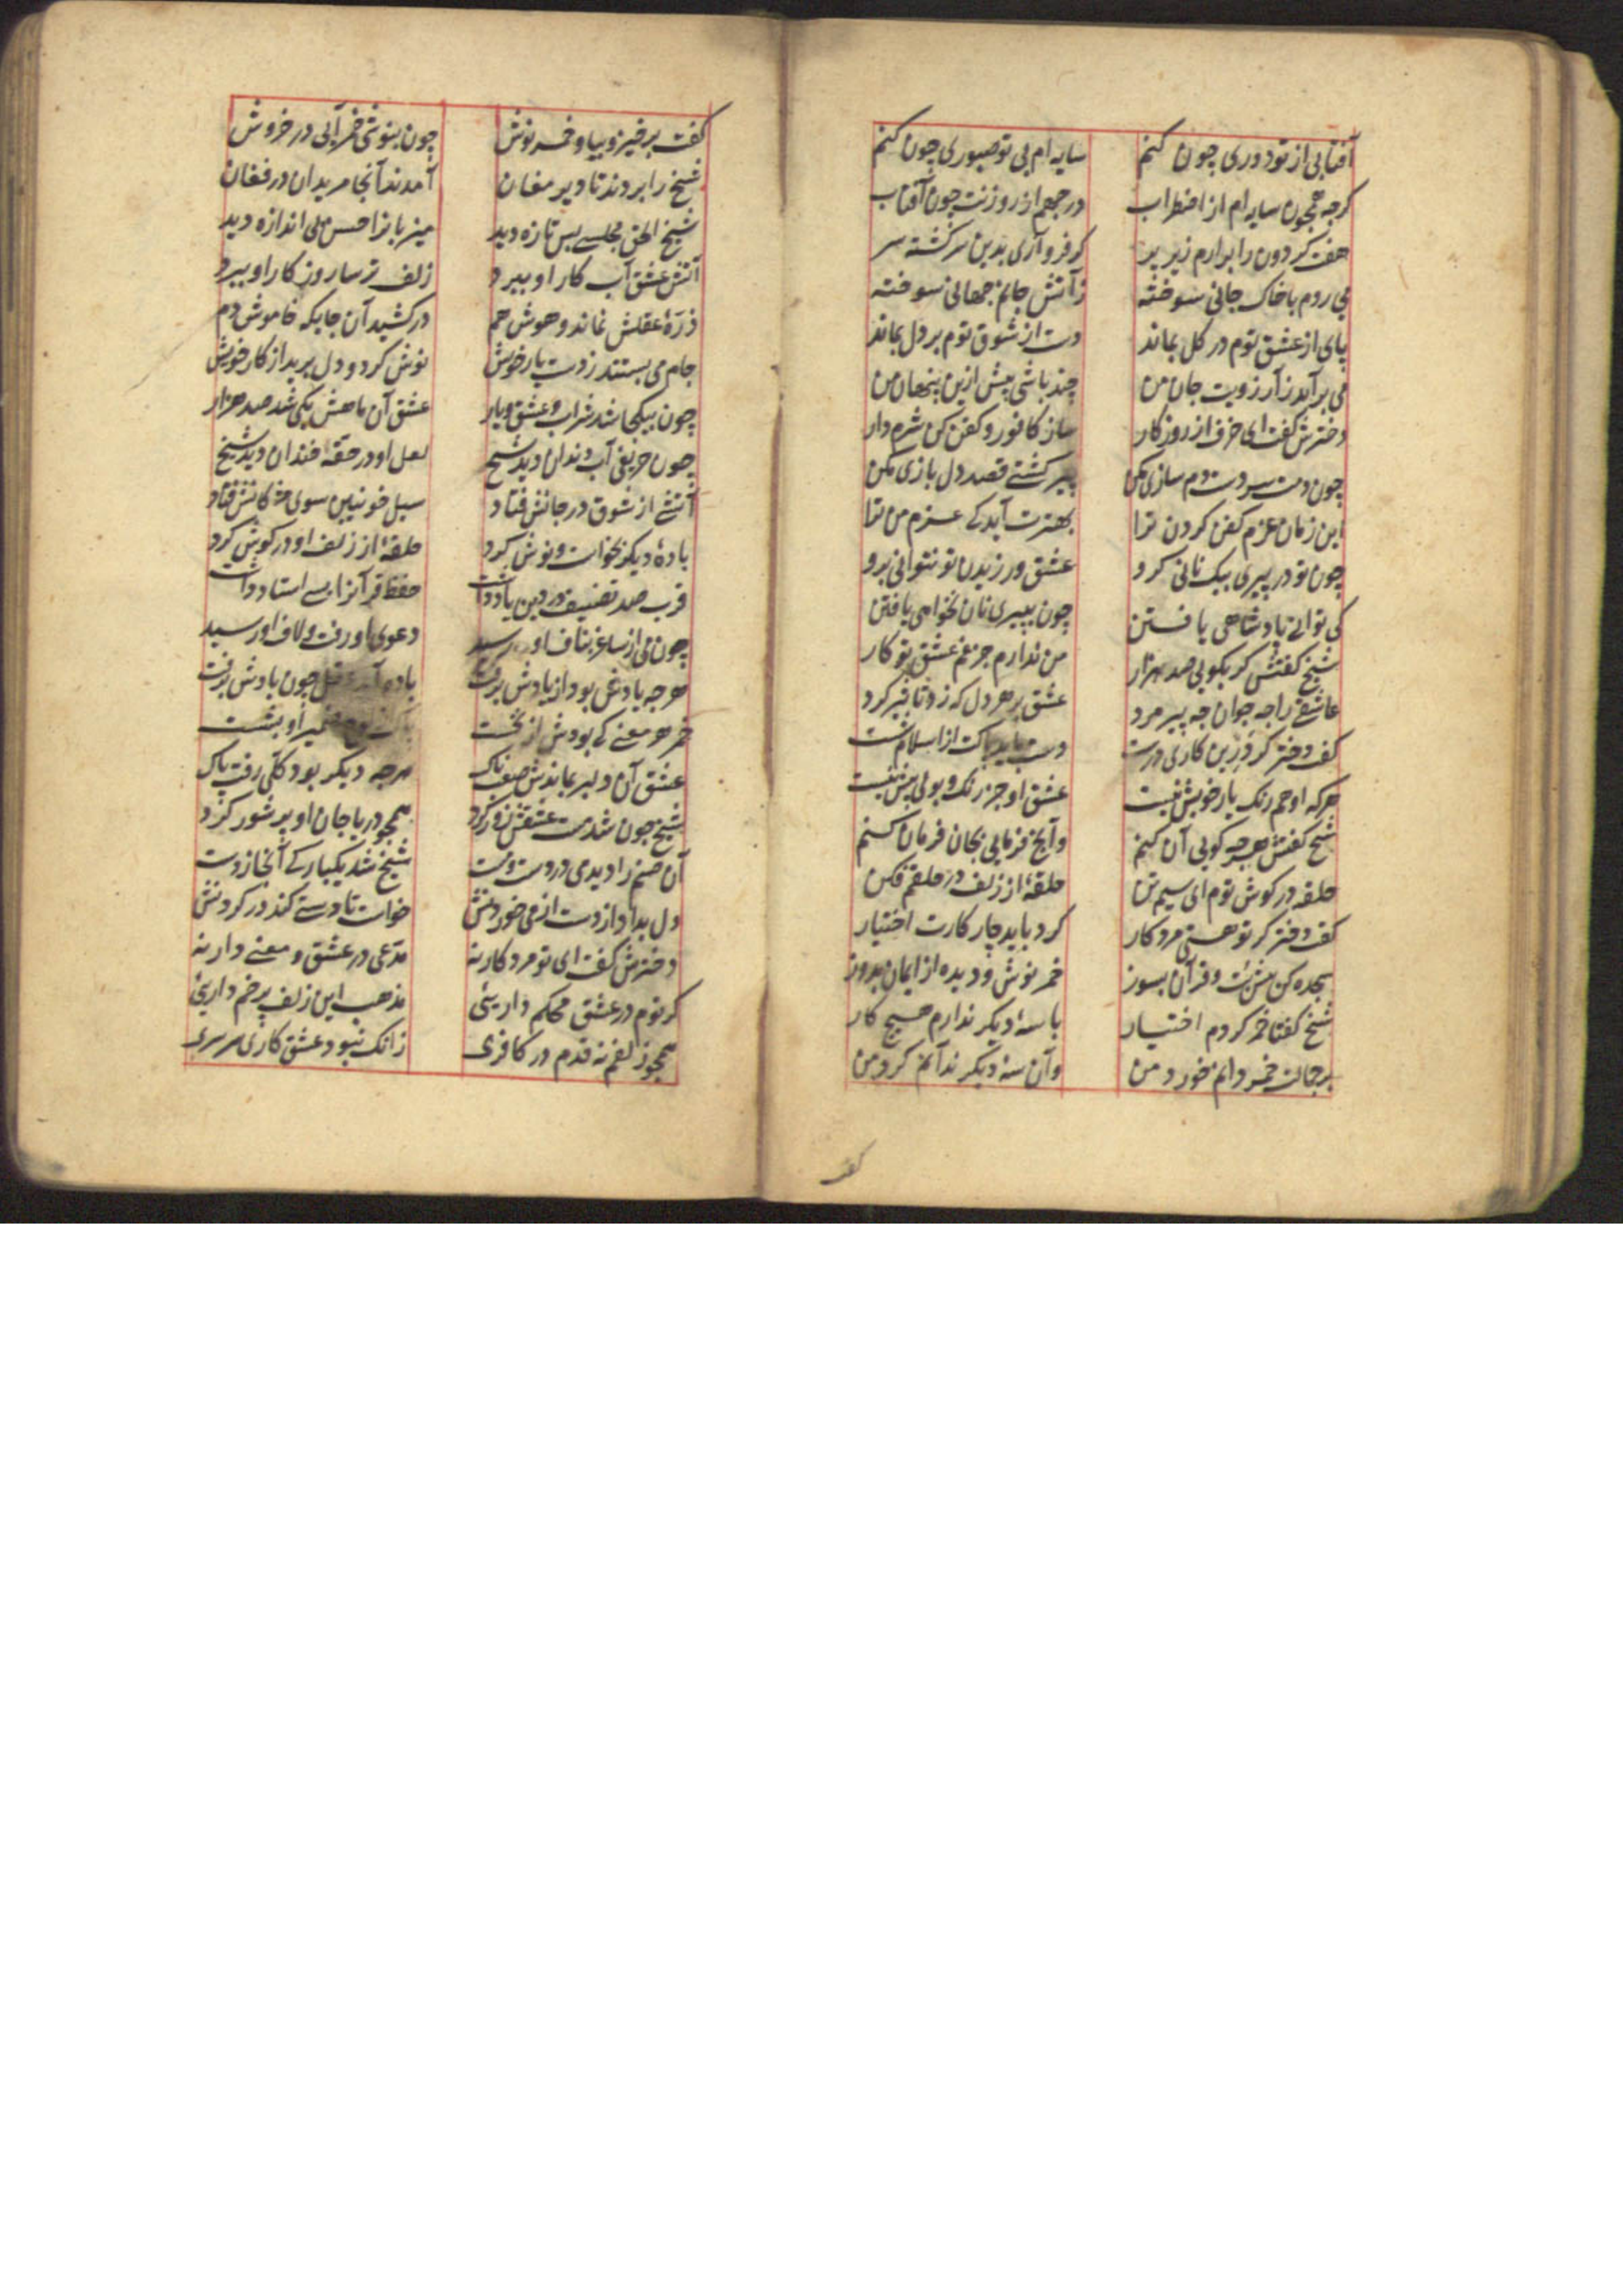 آفتابی از تو دوری چون کنم سایه ام بی تو صبوری چون کنم
کرجه همچون سایه ام از اضطراب درجهم از روزنت چون آفتاب
هفت کردون را برارم زیر پر کر فرو آری بدین سرکشته سر
می روم با خاک جانی سوخته زآتش جانم جهانی سوخته
پای از عشق توم در کل بماند دست از شوق توم بر دل بماند
می برآید زآرزویت جان من چند باشی پیش ازین پنهان من
دخترش کفت ای خرف از روزکار ساز کافور و کفن کن شرم دار
چون دمت سردست دم سازی مکن پیر کشتی قصد دل بازی مکن
این زمان عزم کفن کردن ترا بهترت آید که عزم من ترا
چون تو در پیری بیک نانی کرو عشق ورزیدن تو نتوانی برو
کی توانی پادشاهی یافتن چون بپیری نان نخواهی یافتن
شیخ کفتش کر بکویی صد هزار من ندارم جز غم عشق تو کار
عاشقی راجه جوان جه پیر مرد عشق بر هر دل که زد تاثیر کرد
کفت دختر کر درین کاری درست دست باید پاکت از اسلام شست
هرکه او هم رنک یار خویش نیست عشق او جز رنک و بویی بیش نیست
شیخ کفتش هرجه کویی آن کنم وآنچ فرمایی بجان فرمان کنم
حلقه در کوش توم ای سیم تن حلقهٔ از زلف در حلقم فکن
کفت دختر کر تو هستی مرد کار کرد باید چار کارت اختیار
سجده کن پیش بت و قرآن بسوز خمر نوش و دیده از ایمان بدوز
شیخ کفتا خمر کردم اختیار با سهٔ دیکر ندارم هیچ کار
بر جمالت خمر دانم خورد من وآن سهٔ دیکر ندانم کرد من
کفت
کفت برخیز و بیا و خمر نوش چون بنوشی خمر آیی در خروش
شیخ را بردند تا دیر مغان آمدند آنجا مریدان در فغان
شیخ الحق مجلسی بس تازه دید میزبانرا حسن بی اندازه دید
آتش عشق آب کار او ببرد زلف ترسا روزکار او ببرد
ذرهٔ عقلش نماند و هوش هم درکشید آن جایکه خاموش دم
جام می بستد ز دست یار خویش نوش کرد و دل برید از کار خویش
چون بیکجا شد شراب و عشق و یار عشق آن ماهش یکی شد صد هزار
چون حریفی آب دندان دید شیخ لعل او در حقهٔ خندان دید شیخ
آتشی از شوق در جانش فتاد سیل خونین سوی مژکانش فتاد
بادهٔ دیکر بخواست و نوش کرد حلقهٔ از زلف او در کوش کرد
قرب صد تصنیف در دین یاد داشت حفظ قرآنرا بسی استاد داشت
چون می از ساغر بناف او رسید دعوی او رفت و لاف او رسید
هرجه یادش بود از یادش برفت باده آمد عقل چون بادش برفت
خمر هر معنی که بودش از نخست پاک از لوح ضمیر او بشست
عشق آن دلبر بماندش صعب ناک هرجه دیکر بود کلی رفت پاک
شیخ چون شد مست عشقش زور کرد همچو دریا جان او پر شور کرد
آن صنم را دید می در دست و مست شیخ شد یکبارکی آنجا ز دست
دل بداد از دست از می خوردنش خواست تا دستی کند در کردنش
دخترش کفت ای تو مرد کار نه مدعی در عشق و معنی دار نه
کر توم در عشق محکم داریئی مذهب این زلف پرخم داریئی
همچو زلفم نه قدم در کافری زانک نبود عشق کاری سرسری